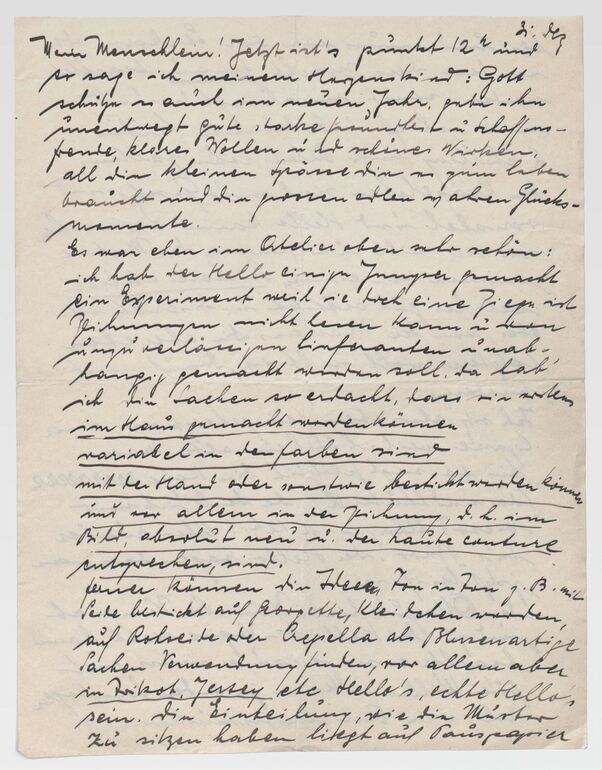 31. Dez
Mein Menschlein! Jetzt ist's punkt 12 h und
so sage ich meinem Herzenskind: Gott
schütze es auch im neuen Jahr, gebe ihm
unentwegt gute, starke Gesundheit u Schaffens-
freude, klares Wollen und schönes Wirken,
all die kleinen Spässe die es zum leben
braucht und die grossen edlen wahren Glücks-
momente.
Es war eben im Atelier oben sehr schön:
ich hab der Hello einige Jumper gemacht
ein Experiment weil sie doch eine Ziege ist
Zeichnungen nicht lesen kann u von
unzuverlässigen Lieferanten unab-
hängig gemacht werden soll, da hab'
ich die Sachen so erdacht, dass sie erstens
im Haus gemacht werden können
variabel in den farben sind
mit der Hand oder sonstwie bestickt werden können
und vor allem in der Zeichnung, d. h. im
Bild, absolut neu u. der haute couture
entsprechen, sind.
ferner können die Ideen, Ton in Ton z. B. mit
Seide bestickt auf Georgette, Kleidchen werden,
auf Rohseide oder Crepella als Blusenartige
Sachen Verwendung finden, vor allem aber
in Trikot, Jersey etc Hello's, echte Hello's
sein. die Einteilung, wie die Muster
zu sitzen haben liegt auf Pauspapier